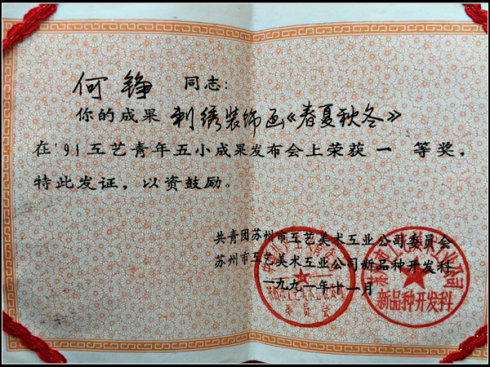 何铮 同志:
你的成果 刺绣装饰画《春夏秋冬》
在'91工艺青年五小成果发布会上荣获 一 等奖,
特此发证,以资鼓励。
共青团苏州市工艺美术工业公司委员会
苏州市工艺美术工业公司新品种开发科
一九九一年十一月
新品种开发科